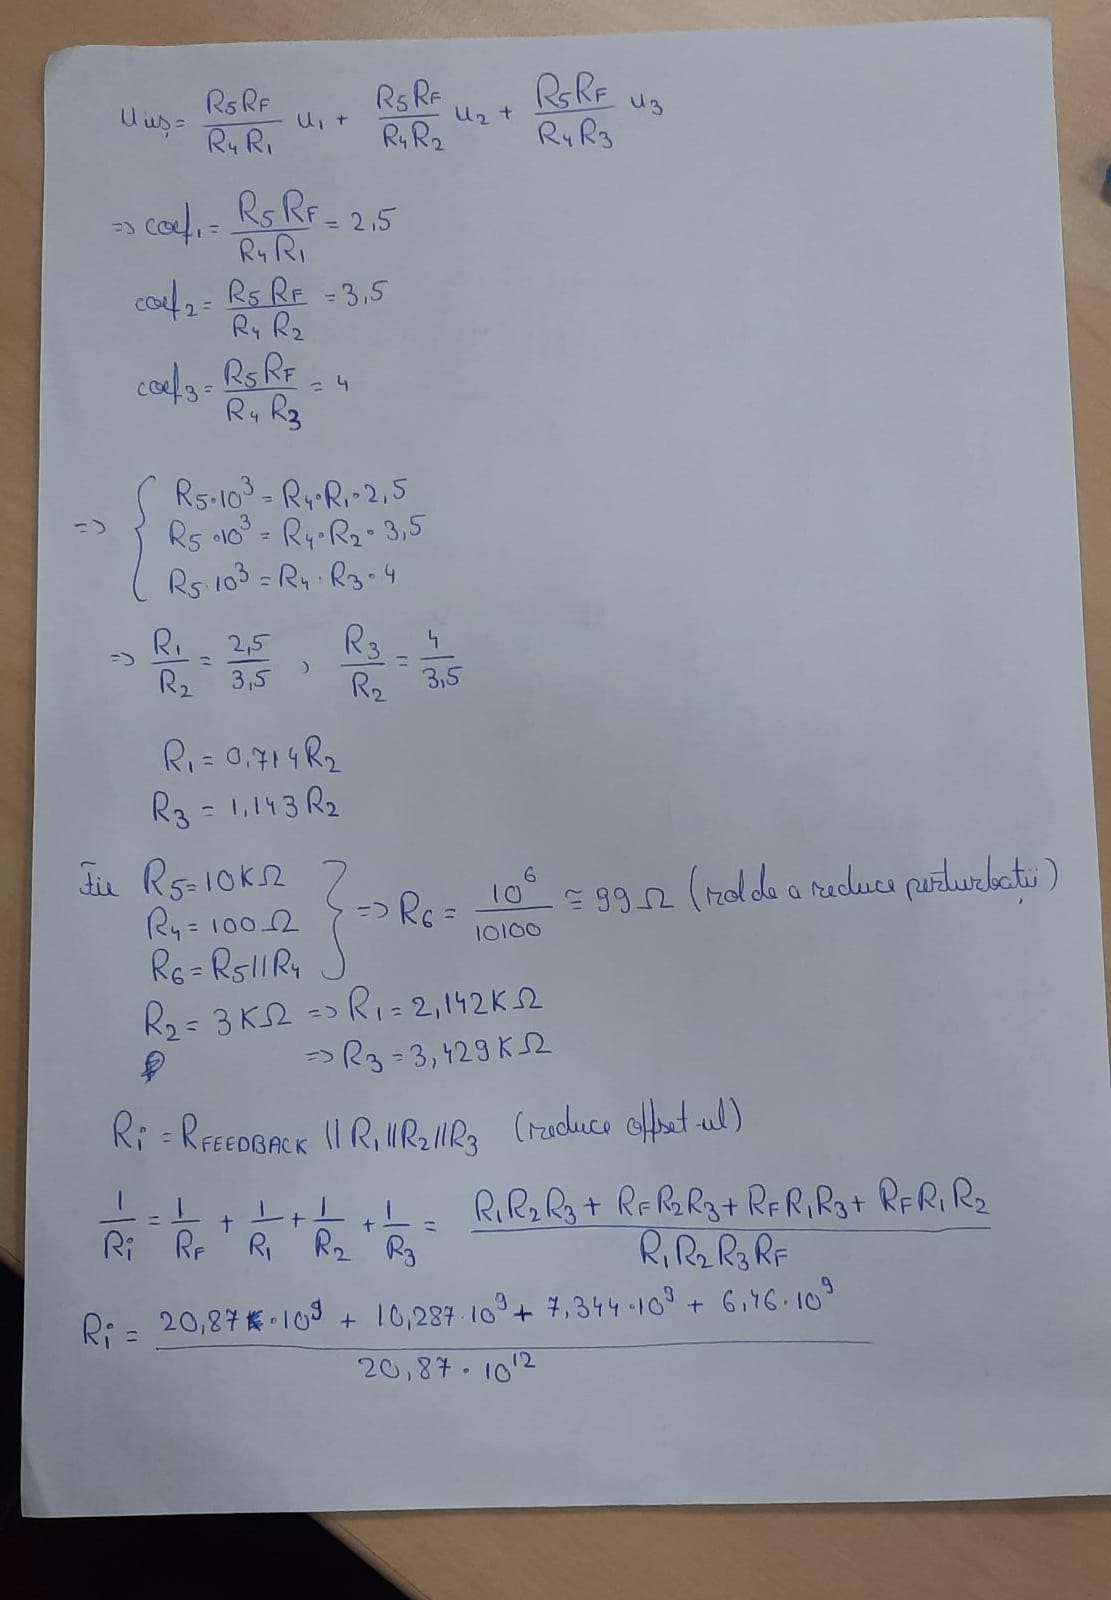 Uieș = R5RF/R4R1 u1 + R5RF/R4R2 u2 + R5RF/R4R3 u3
=> coef1 = R5RF/R4R1 = 2,5
coef2 = R5RF/R4R2 = 3,5
coef3 = R5RF/R4R3 = 4
=> { R5·10³ = R4·R1·2,5
R5·10³ = R4·R2·3,5
R5·10³ = R4·R3·4
=> R1/R2 = 2,5/3,5 , R3/R2 = 4/3,5
R1 = 0,714R2
R3 = 1,143R2
Fie R5 = 10KΩ
R4 = 100Ω } => R6 = 10⁶/10100 ≅ 99Ω (rol de a reduce perturbații)
R6 = R5||R4
R2 = 3KΩ => R1 = 2,142KΩ
=> R3 = 3,429KΩ
Ri = RFEEDBACK || R1||R2||R3 (reduce offset-ul)
1/Ri = 1/RF + 1/R1 + 1/R2 + 1/R3 = (R1R2R3 + RFR2R3 + RFR1R3 + RFR1R2)/(R1R2R3RF)
Ri = (20,87·10⁹ + 10,287·10⁹ + 7,344·10⁹ + 6,46·10⁹)/(20,87·10¹²)